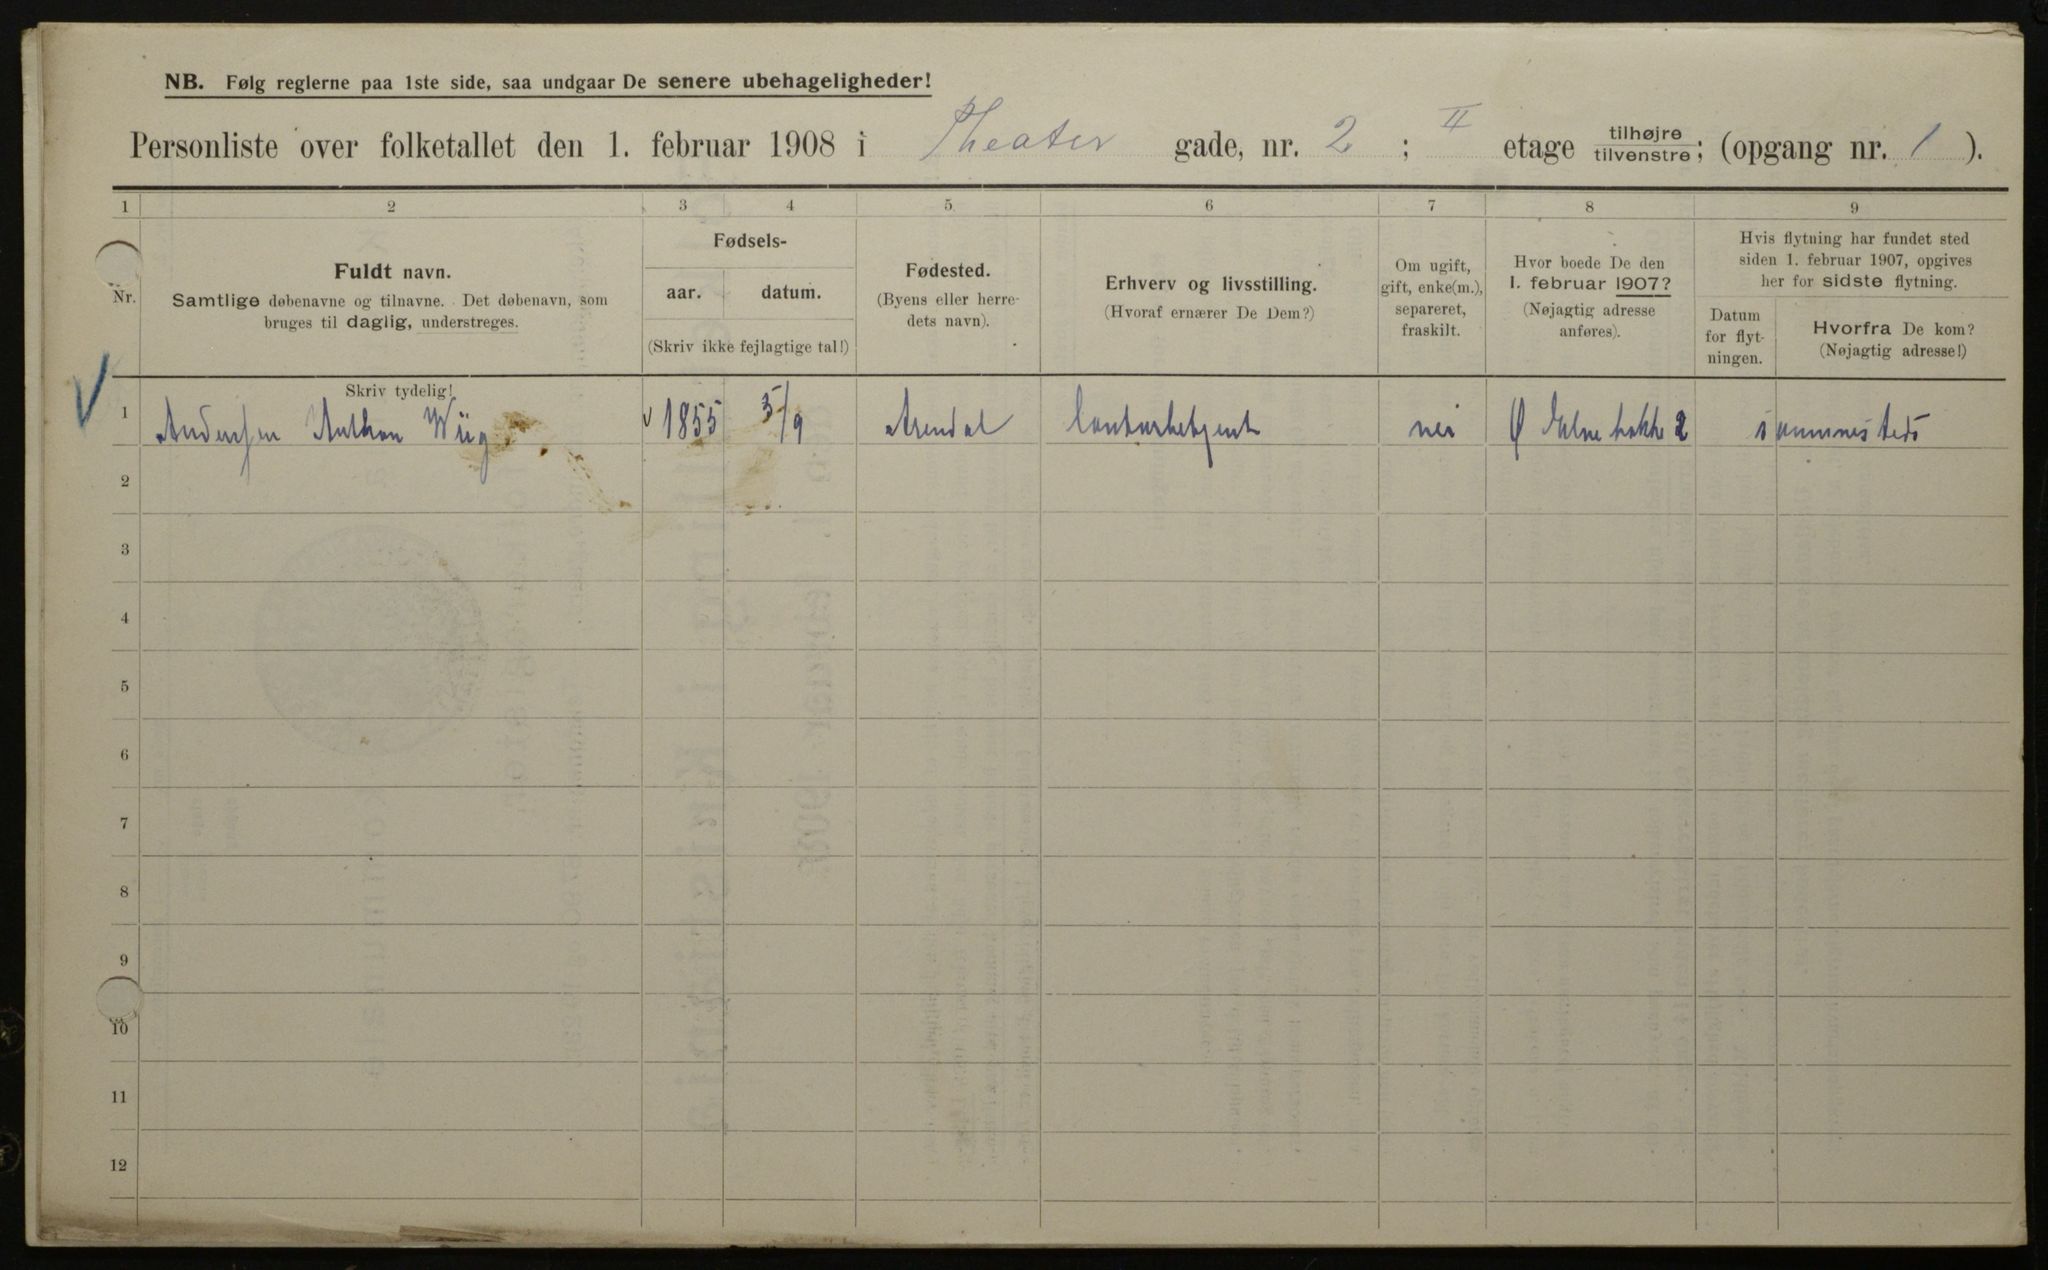 NB. Følg reglerne paa 1ste side, saa undgaar De senere ubehageligheder!
Personliste over folketallet den 1. februar 1908 i Theater gade, nr. 2 ; II etage tilhøjre/tilvenstre; (opgang nr. 1 ).
1 2 3 4 5 6 7 8 9
Nr.
Fuldt navn.
Samtlige døbenavne og tilnavne. Det døbenavn, som
bruges til daglig, understreges.
Fødsels-
aar. datum.
(Skriv ikke fejlagtige tal!)
Fødested.
(Byens eller herre-
dets navn).
Erhverv og livsstilling.
(Hvoraf ernærer De Dem?)
Om ugift,
gift, enke(m.),
separeret,
fraskilt.
Hvor boede De den
1. februar 1907?
(Nøjagtig adresse
anføres).
Hvis flytning har fundet sted
siden 1. februar 1907, opgives
her for sidste flytning.
Datum
for flyt-
ningen.
Hvorfra De kom?
(Nøjagtig adresse!)
Skriv tydelig!
1 Anderssen Anthon Wiig 1855 5/9 Arendal Contorbetjent nei Ø 2 sammesteds
2
3
4
5
6
7
8
9
10
11
12